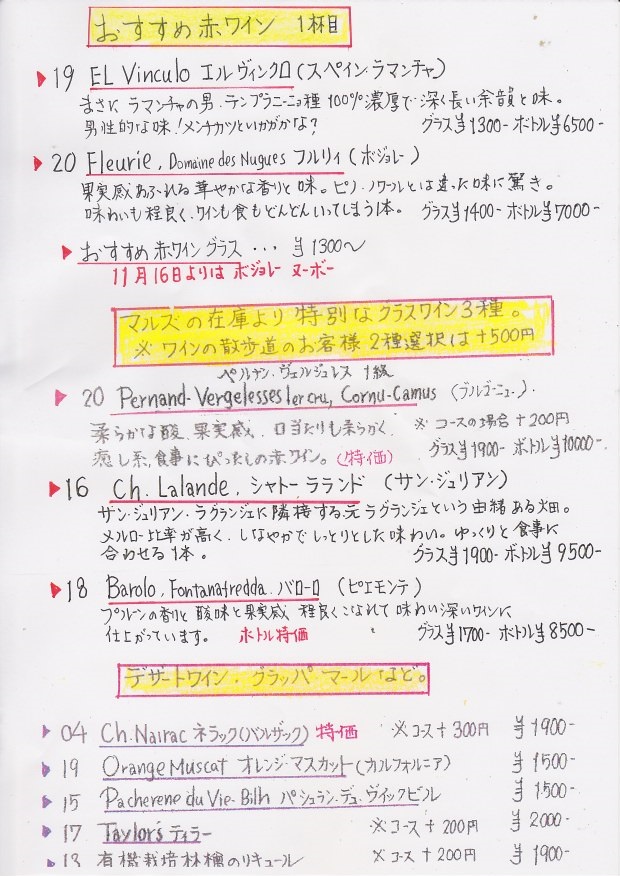 おすすめ赤ワイン 1杯目
19 EL Vinculo エルヴィンクロ (スペイン・ラマンチャ)
まさに ラマンチャの男・テンプラニーニョ種 100%濃厚で深く長い余韻と味。
男性的な味!メンチカツといかがかな? グラス¥1300- ボトル¥6500-
20 Fleurie, Domaine des Nugues フルリィ (ボジョレー)
果実感あふれる華やかな香りと味。ピノ・ノワールとは違った味に驚き。
味わいも程良く、ワインも食もどんどんいってしまう1本。 グラス¥1400- ボトル¥7000-
おすすめ赤ワイングラス・・・ ¥1300〜
11月16日よりは ボジョレー ヌーボー
マルズの在庫より特別なグラスワイン3種。
※ ワインの散歩道のお客様 2種選択は+500円
ペルナン・ヴェルジュレス 1級
20 Pernand-Vergelesses 1er cru, Cornu-Camus (ブルゴーニュー)
柔らかな酸、果実感、口当たりも柔らかく、 ※ コースの場合 +200円
癒し系、食事にぴったしの赤ワイン。(特価) グラス¥1900- ボトル¥10000-
16 Ch. Lalande, シャトー ラランド (サン・ジュリアン)
サン・ジュリアン・ラグランジェに隣接する元ラグランジェという由緒ある畑。
メルロー比率が高く、しなやかでしっとりとした味わい。ゆっくりと食事に
合わせる1本。 グラス¥1900- ボトル¥9500-
18 Barolo, Fontanafredda バローロ (ピエモンテ)
プルーンの香りと酸味と果実感 程良くこなれて味わい深いワインに
仕上がっています。 ボトル特価 グラス¥1700- ボトル¥8500-
デザートワイン・グラッパ マールなど。
04 Ch. Nairac ネラック(バルザック) 特価 ※ コース+300円 ¥1900-
19 Orange Muscat オレンジ・マスカット(カルフォルニア) ¥1500-
15 Pacherene du Vie-Bilh パシュラン・デュ・ヴィックビル ¥1500-
17 Taylor's ティラー ※コース+200円 ¥2000-
13 有機栽培林檎のリキュール ※ コース+200円 ¥1900-